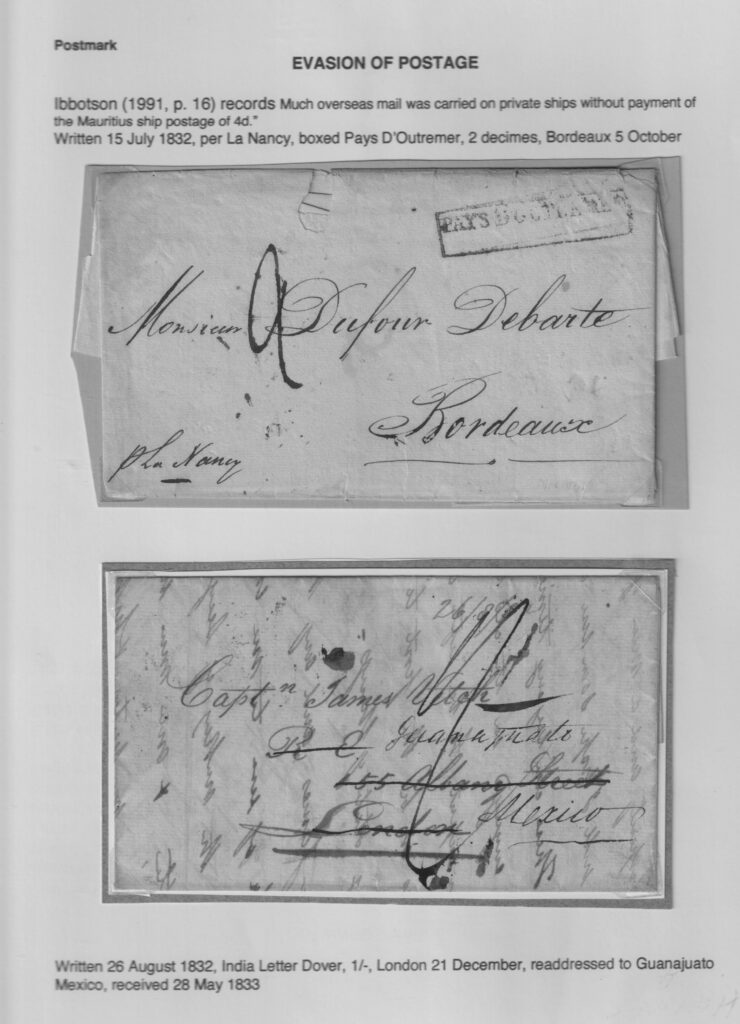 Postmark
EVASION OF POSTAGE
Ibbotson (1991, p. 16) records Much overseas mail was carried on private ships without payment of
the Mauritius ship postage of 4d."
Written 15 July 1832, per La Nancy, boxed Pays D'Outremer, 2 decimes, Bordeaux 5 October
PAYS D'OUTREMER
Monsieur Dufour Debarte
Bordeaux
p La Nancy
Captn James Vetch
R E Guanajuato
55 Albany Street
London Mexico
Written 26 August 1832, India Letter Dover, 1/-, London 21 December, readdressed to Guanajuato
Mexico, received 28 May 1833